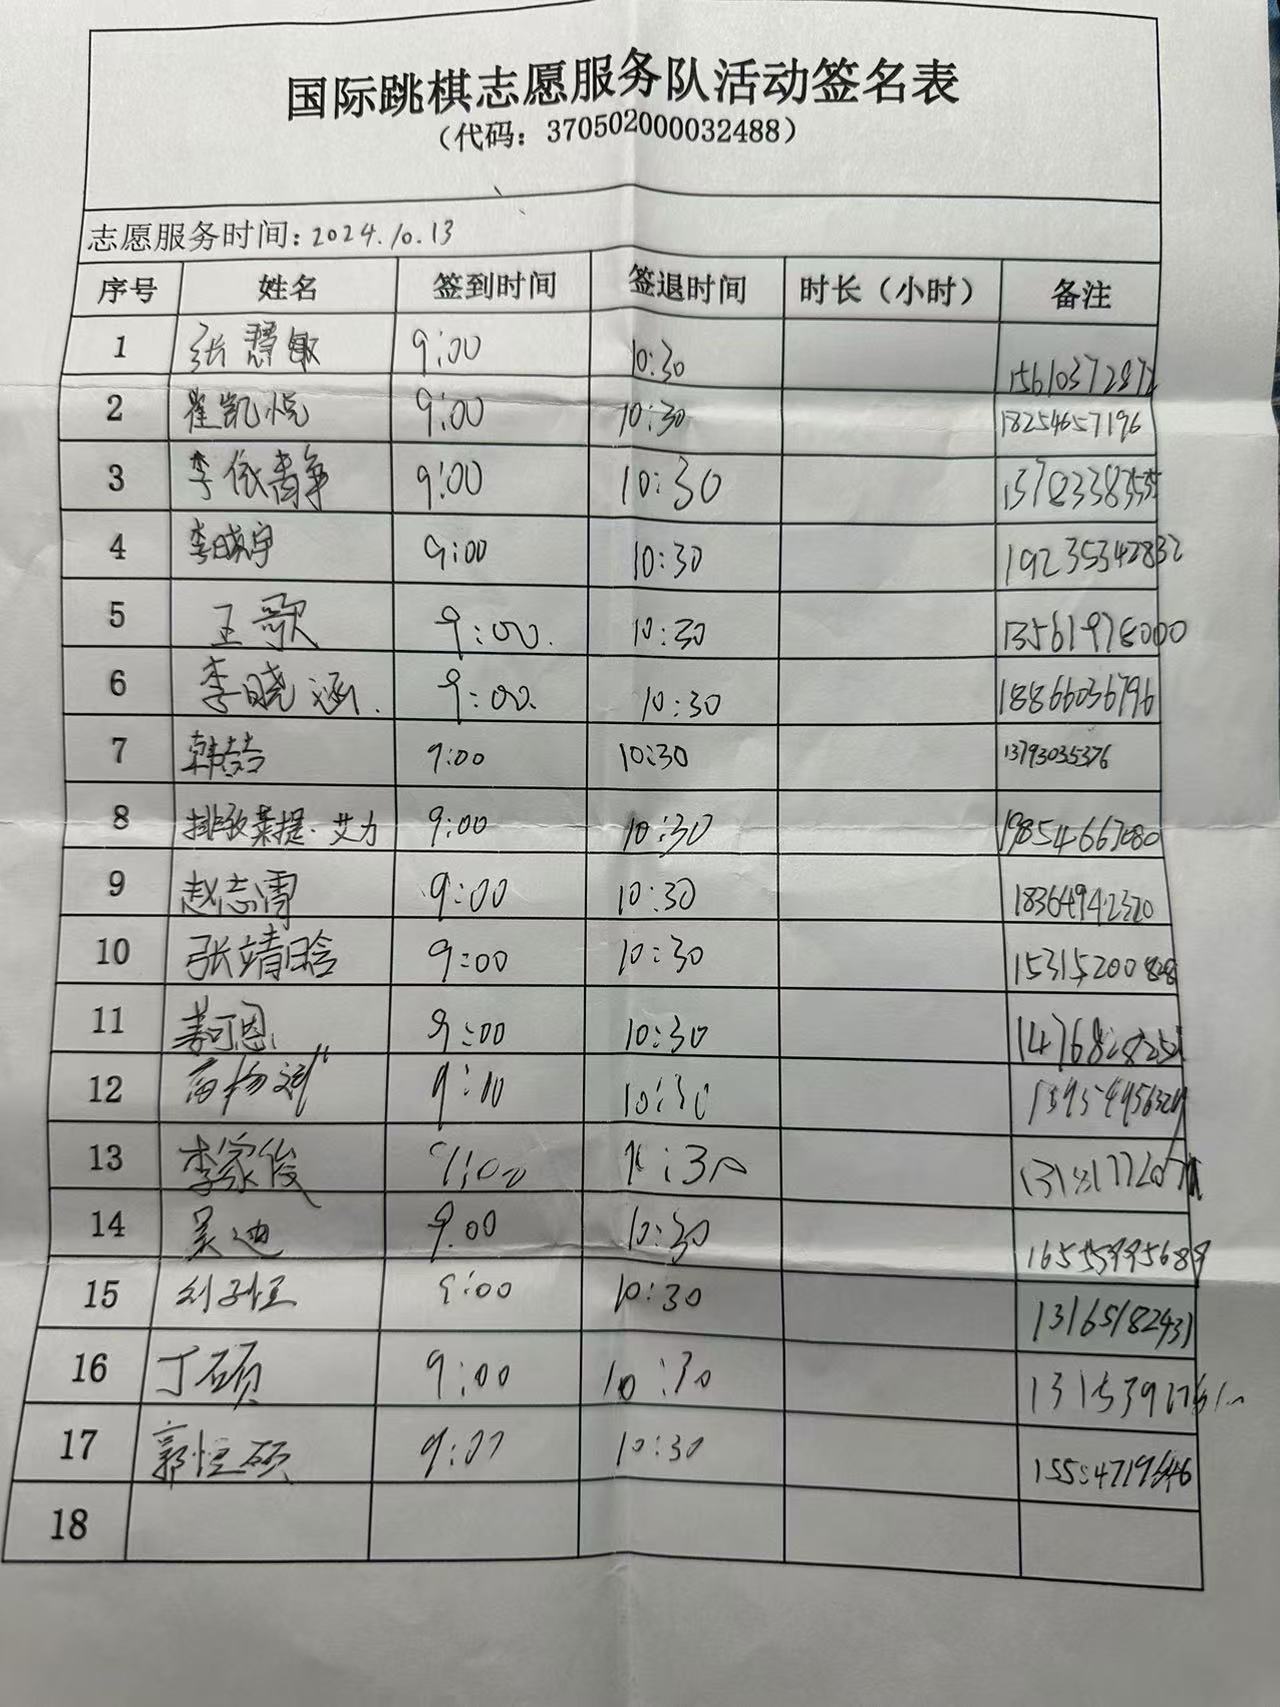 国际跳棋志愿服务队活动签名表
（代码：370502000032488）
志愿服务时间：2024.10.13
序号 姓名 签到时间 签退时间 时长（小时） 备注
1 张慧敏 9:00 10:30 15610372872
2 崔凯悦 9:00 10:30 18254657196
3 李依青争 9:00 10:30
4 李晓宇 9:00 10:30 19235342832
5 王歌 9:00. 10:30 13561978000
6 李晓涵. 9:00. 10:30 18866036796
7 韩喆 9:00 10:30 13793035376
8 排孜莱提·艾力 9:00 10:30 19854667080
9 赵志霄 9:00 10:30 18364942320
10 张靖晗 9:00 10:30 15315200828
11 姜可恩 9:00 10:30
12 9:10 10:30
13 李家俊 9:00 10:30
14 吴迪 9.00 10:30 16555995689
15 刘子恒 9:00 10:30 13165182431
16 丁硕 9:00 10:30
17 郭恒硕 9:00 10:30
18